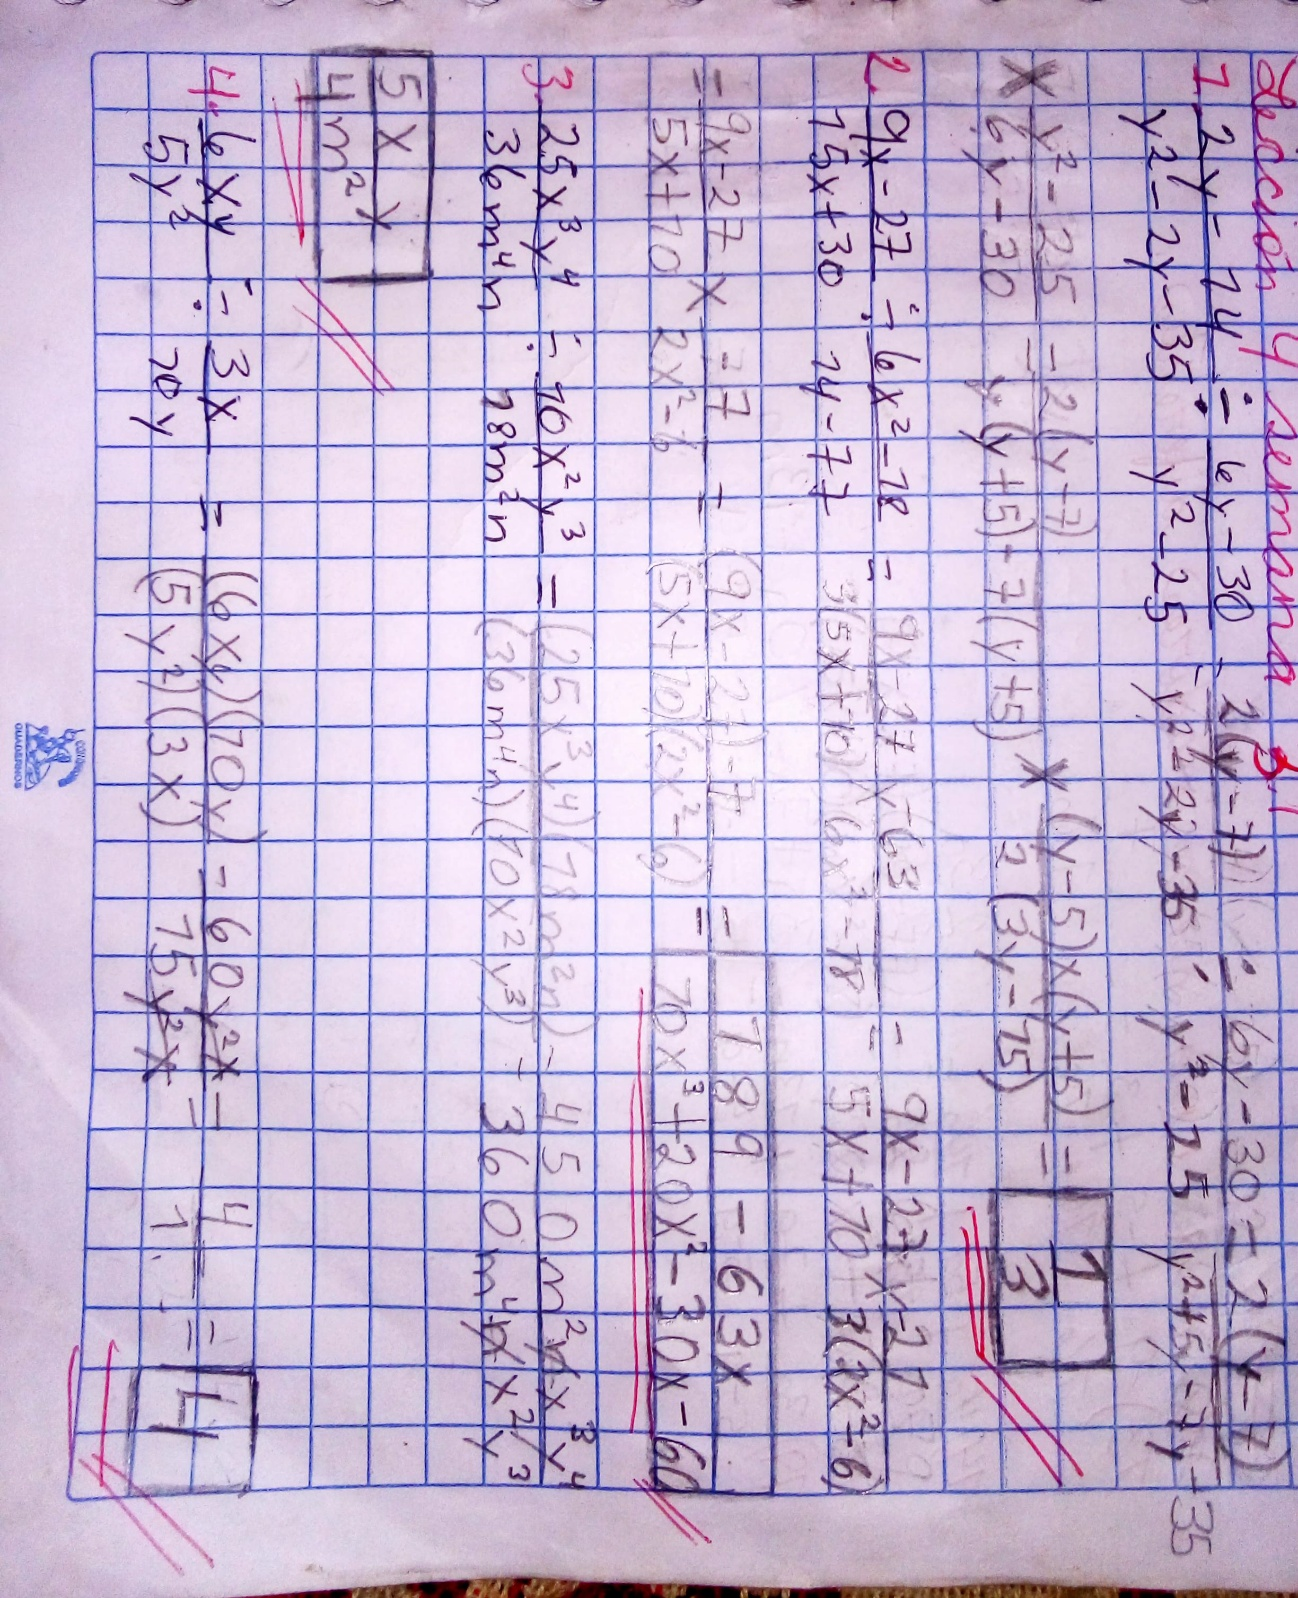 Lección 4 semana 3.1
1. 2y-14/y²-2y-35 ÷ 6y-30/y²-25 = 2(y-7)/y²-2y-35 ÷ 6y-30/y²-25 = 2(y-7)/y²+5y-7y-35
x y²-25/6y-30 = 2(y-7)/y(y+5)-7(y+5) x (y-5)x(y+5)/2(3y-15) = 1/3
2. 9x-27/15x+30 ÷ 6x²-18/14-77 = 9x-27x-63/3(5x+10)(6x²-18 = 9x-27x-21/5x+10 3(2x²-6)
= 9x-27/5x+10 x -7/2x²-6 = (9x-27)-7/(5x+10)(2x²-6) = 189-63x/10x³+20x²-30x-60
3. 25x³y⁴/36m⁴n ÷ 10x²y³/18m²n = (25x³y⁴)(18m²n)/(36m⁴n)(10x²y³) = 450m²nx³y⁴/360m⁴nx²y³
5xy/4m²
4. 6xy/5y² ÷ 3x/10y = (6xy)(10y)/(5y²)(3x) = 60y²x/15y²x = 4/1 = 4